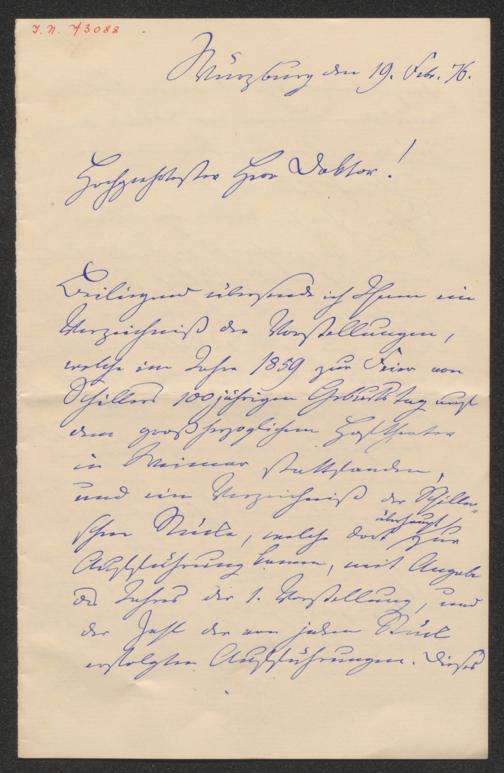 J. N. 73088
Würzburg den 19. Febr. 76.
Hochgeehrtester Herr Doktor!
Beiliegend übersende ich Ihnen ein
Verzeichniß der Vorstellungen,
welche im Jahre 1859 zur Feier von
Schillers 100jährigem Geburtstag auf
dem großherzoglichen Hoftheater
in Weimar stattfanden,
und ein Verzeichniß der Schiller-
schen Stücke, welche dort überhaupt zur
Aufführung kamen, mit Angabe
des Jahres der 1. Vorstellung, und
der Zahl der von jedem Stück
erfolgten Aufführungen. Dieses